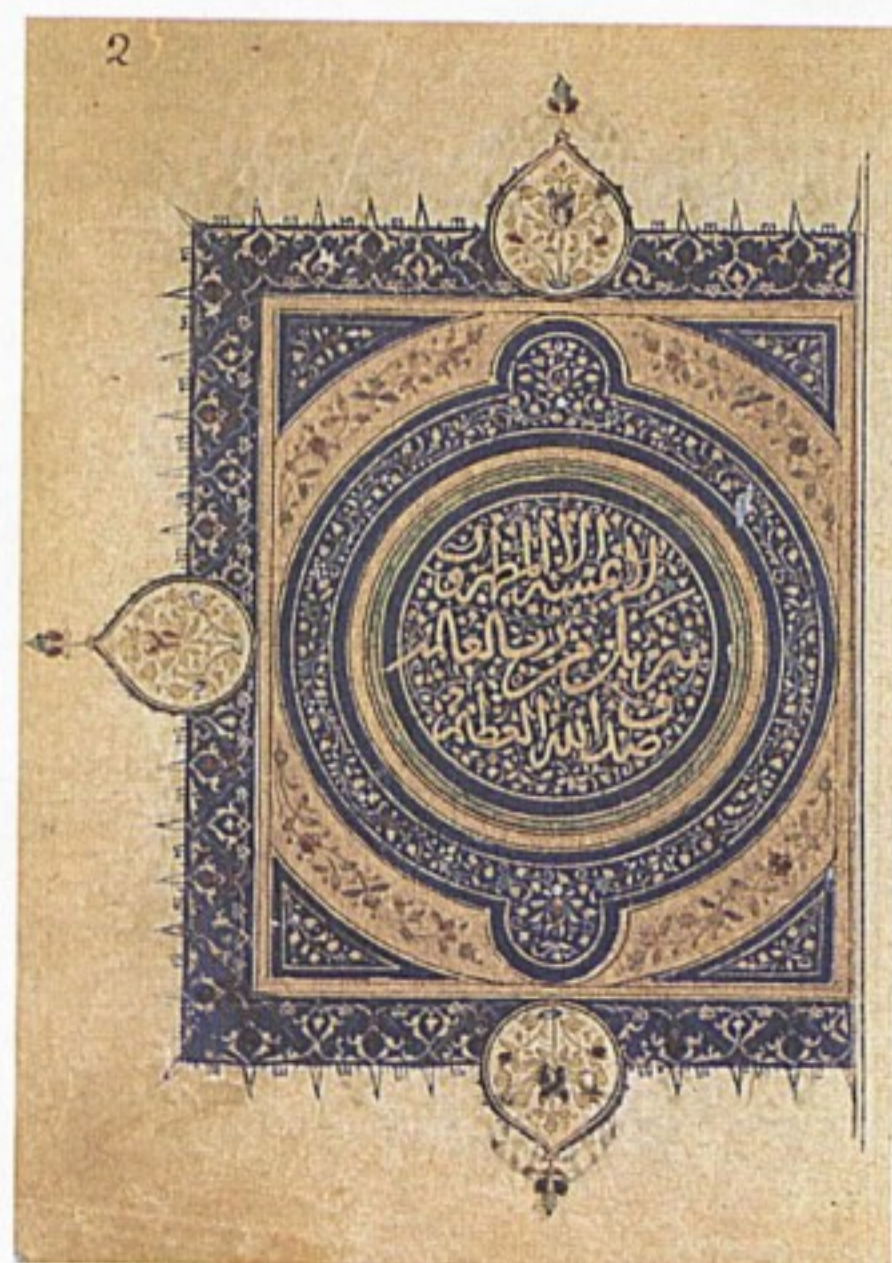 2
لا يمسه الا المطهرون
تنزيل من رب العالمين
صدق الله العظيم